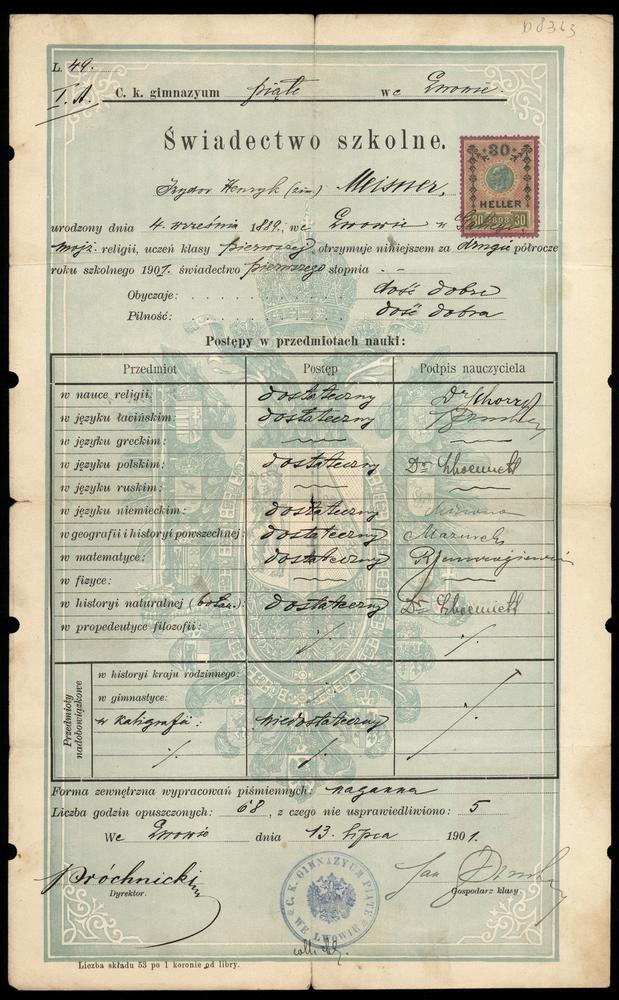 D 8363
L. 49.
I. A. C. k. gimnazyum piąte we Lwowie.
Świadectwo szkolne.
30
HELLER
30 1898 30
Izydor Henryk (im.) Meisner,
urodzony dnia 4. września 1889, we Lwowie w Galicyi,
mojż. religii, uczeń klasy pierwszej, otrzymuje niniejszem za drugie półrocze
roku szkolnego 1901. świadectwo pierwszego stopnia
Obyczaje: dość dobre
Pilność: dość dobra
Postępy w przedmiotach nauki:
Przedmiot Postęp Podpis nauczyciela
w nauce religii: dostateczny Dr Schorr
w języku łacińskim: dostateczny
w języku greckim:
w języku polskim: dostateczny Dr
w języku ruskim:
w języku niemieckim: dostateczny
w geografii i historyi powszechnej: dostateczny Mazurek
w matematyce: dostateczny
w fizyce:
w historyi naturalnej (botan.): dostateczny Dr
w propedeutyce filozofii: ·/. ·/.
Przedmioty nadobowiązkowe
w historyi kraju rodzinnego:
w gimnastyce:
w kaligrafii: niedostateczny ·/.
·/. ·/.
Forma zewnętrzna wypracowań piśmiennych: naganna
Liczba godzin opuszczonych: 68, z czego nie usprawiedliwiono: 5
We Lwowie dnia 13. lipca 1901.
Próchnicki Jan
Dyrektor. Gospodarz klasy.
C. K. GIMNAZYUM PIĄTE WE LWOWIE
Liczba składu 53 po 1 koronie od libry.